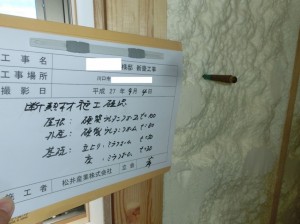 工事名 様邸 新築工事
工事場所 川口市
撮影日 平成27年9月4日
断熱材施工確認
屋根: 硬質ウレタンフォーム t=100
外壁: 硬質ウレタンフォーム t=80
基礎: 立上り・ミラフォーム t=50
床・ミラフォーム t=30
施工者 松井産業株式会社 立会